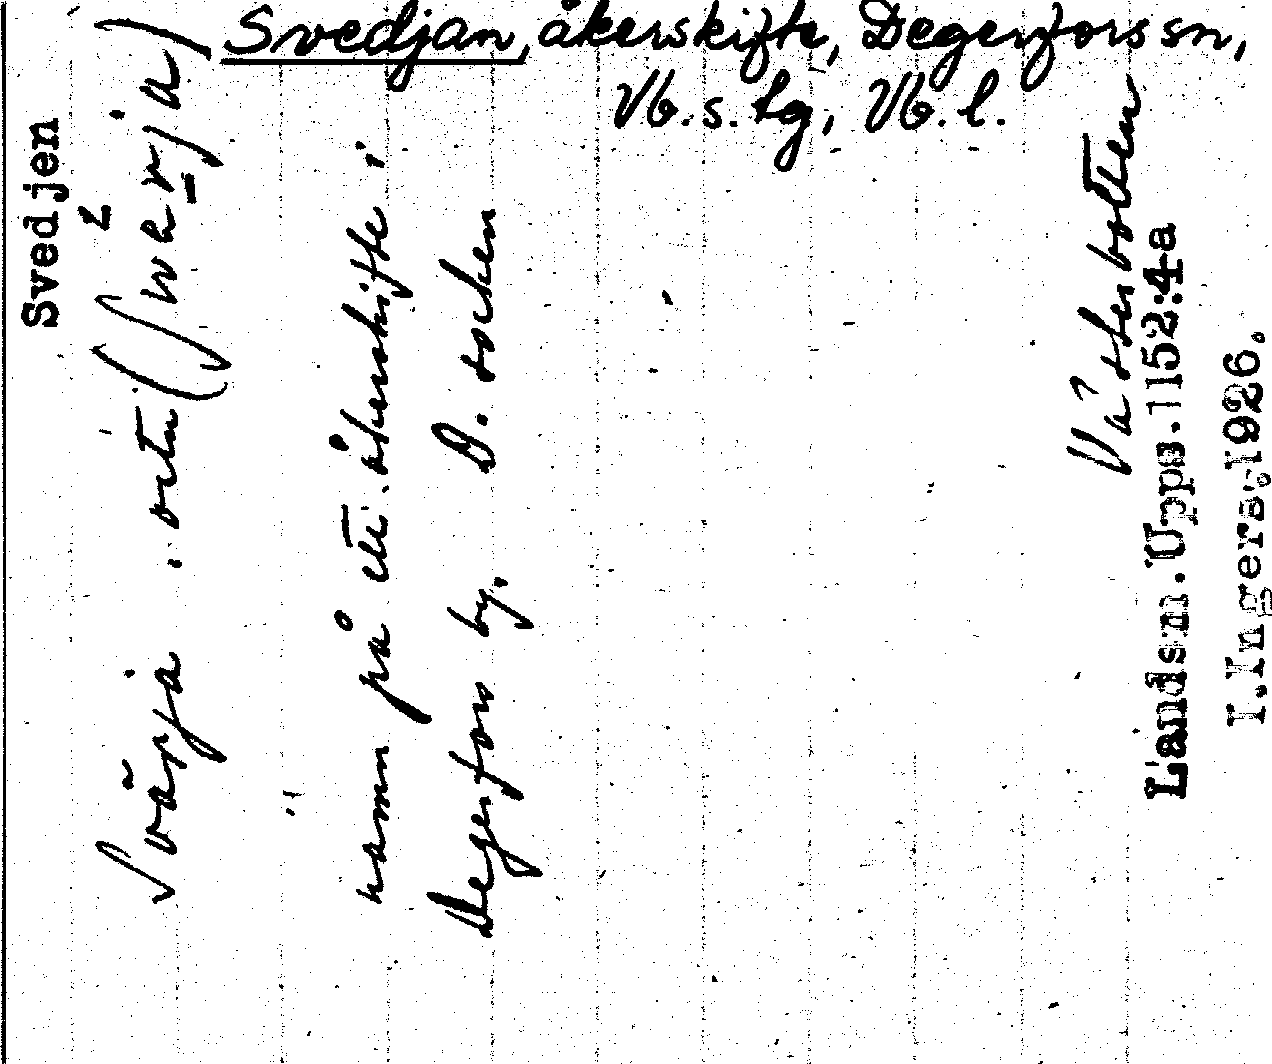 Svedjan, åkerskifte, Degerfors sn,
Vb. s. tg, Vb. l.
Svedjen
Sväрja . ortn
namn på ett åkerskifte i
Degerfors by. D. socken
Västerbotten
Landsm.Upps.1152:4a
I.Ingers.1926.